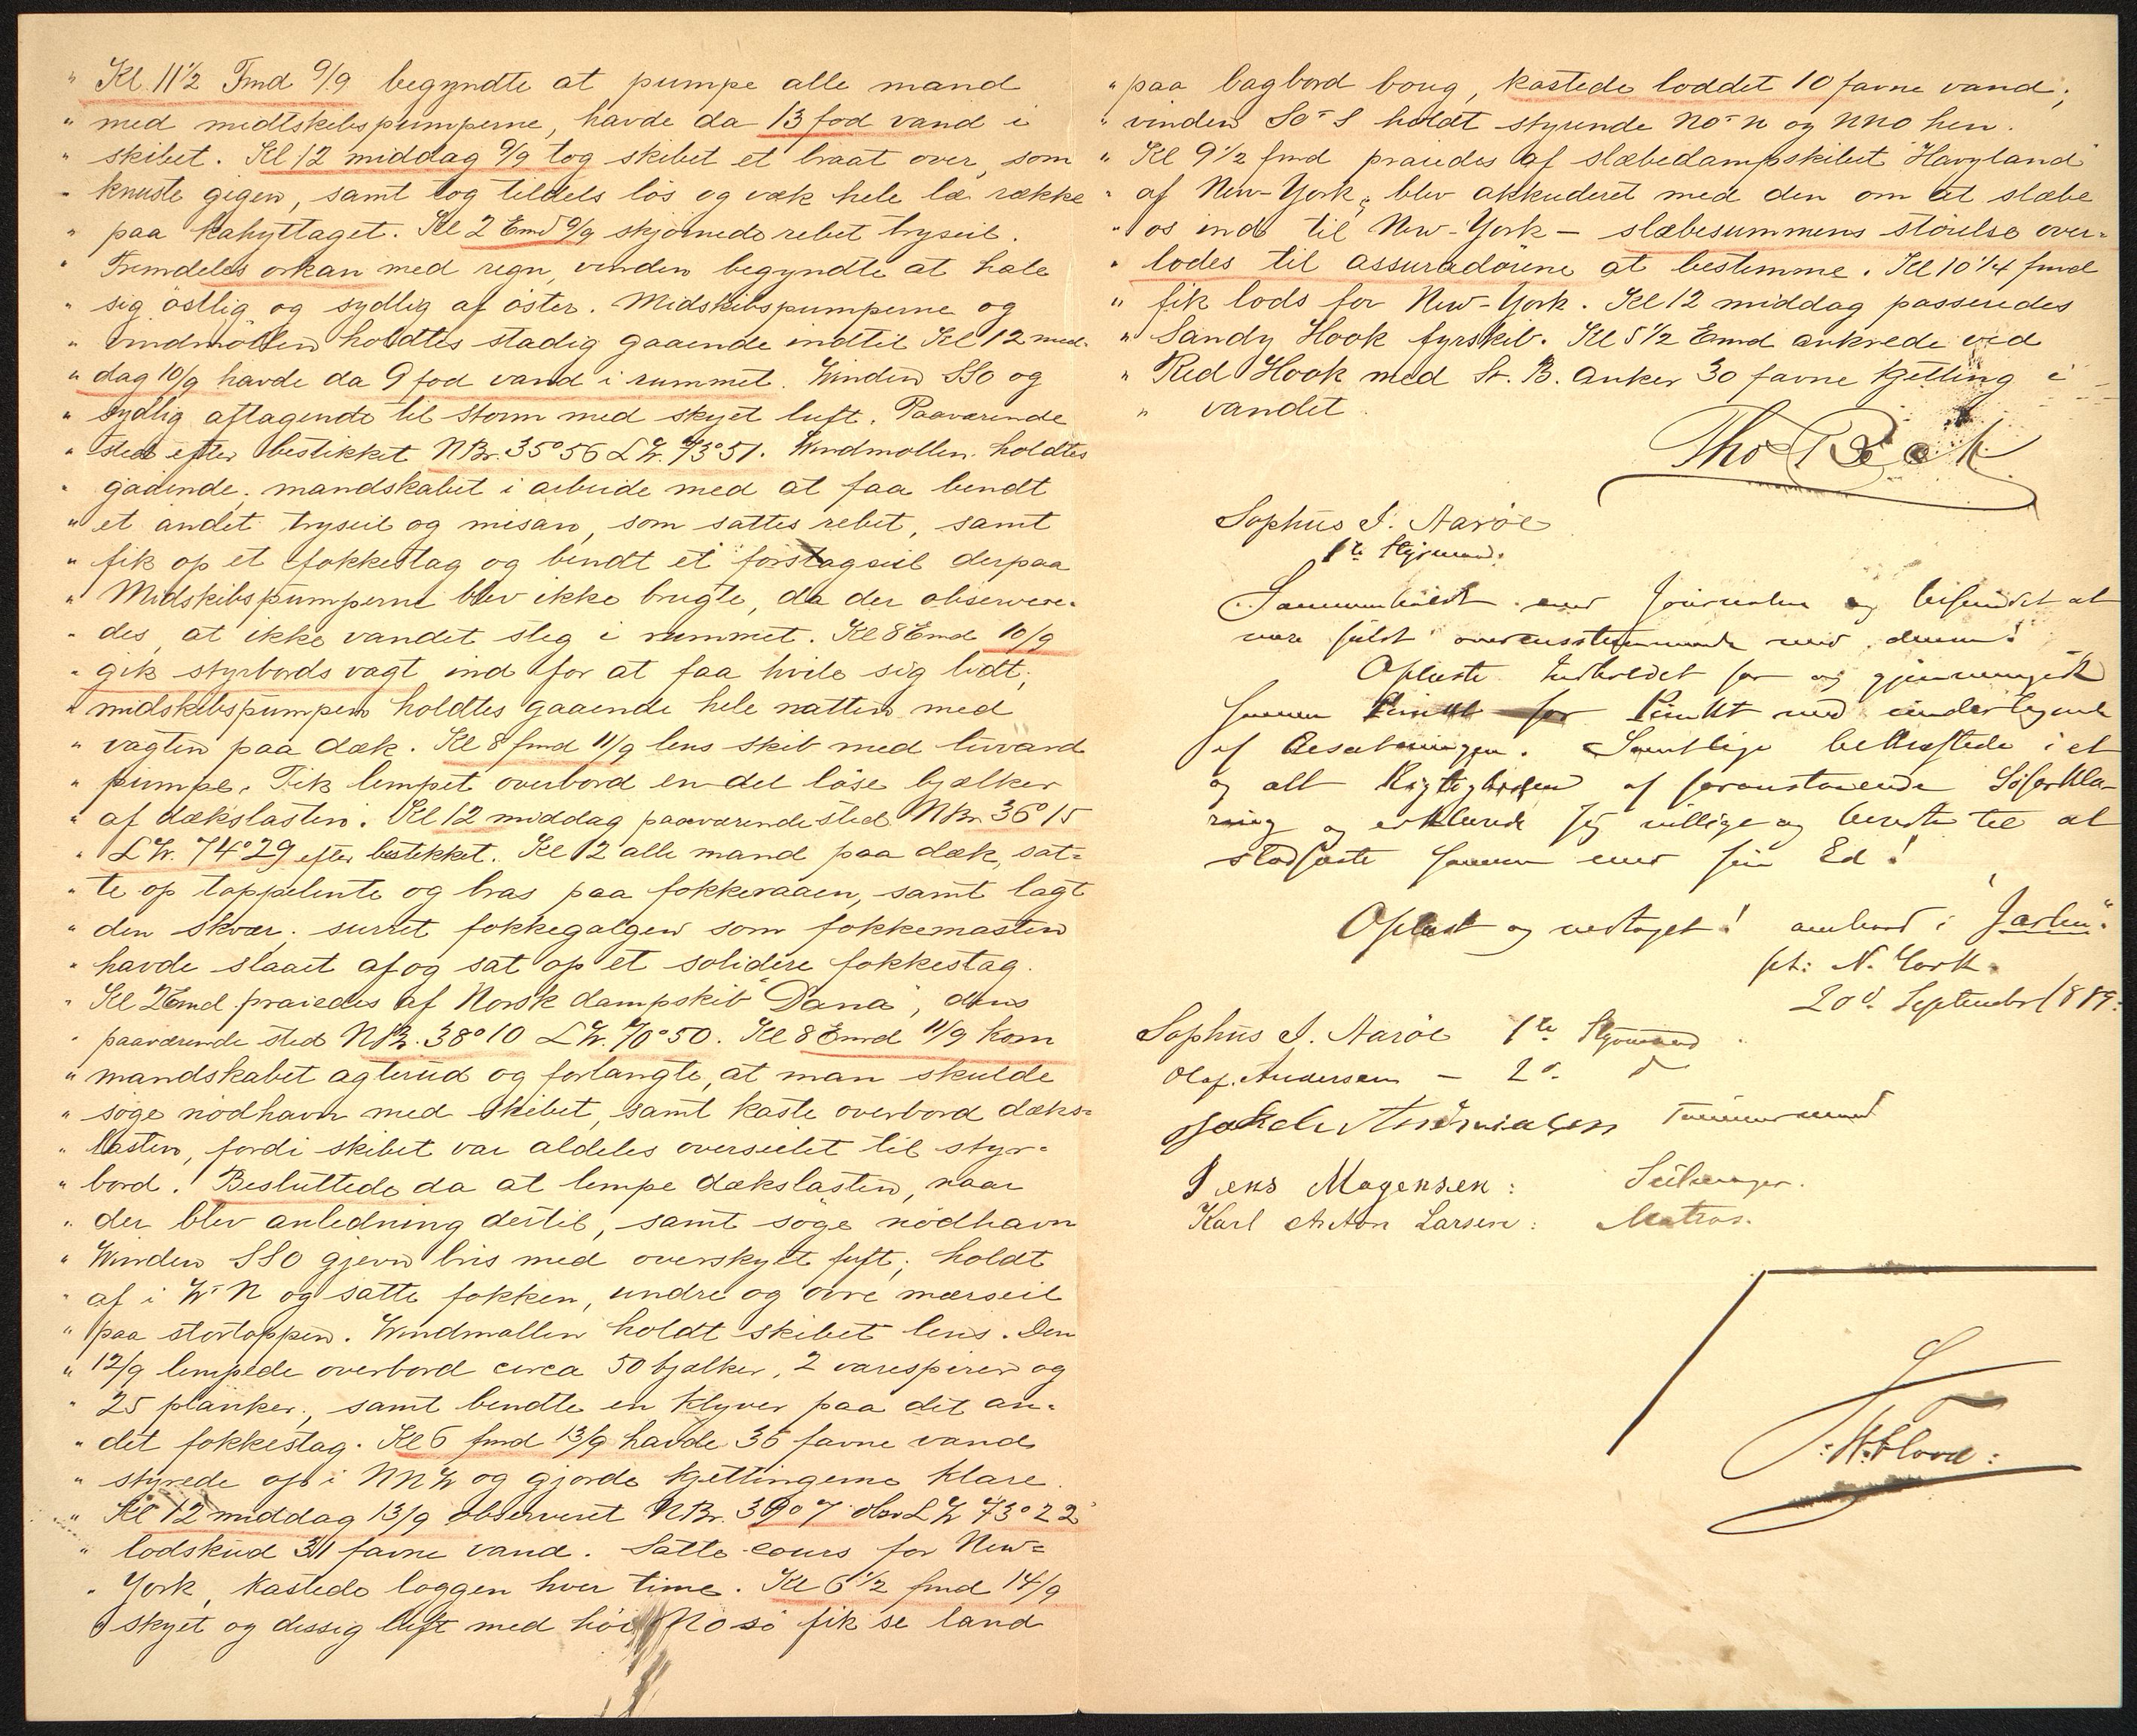 " Kl. 11 1/2 Fmd 9/9 begyndte at pumpe alle mand
" med midtskibspumperne, havde da 13 fod vand i
" skibet. Kl 12 middag 9/9 tog skibet et braat over, som
" knuste gigen, samt tog tildels lös og væk hele læ række
" paa kahyttaget. Kl 2 Emd 9/9 skjörnede rebet tryseil.
" Fremdeles orkan med regn, vinden begyndte at hale
" sig östlig og sydlig af öster. Midskibspumperne og
" vindmöllen holdtes stadig gaaende indtil Kl 12 mid-
" dag 10/9 havde da 9 fod vand i rummet. Winden SSO og
" sydlig aftagende til storm med skyet luft. Paaværende
" sted efter bestikket NBr. 35°56 LW. 73°51. Windmollen holdtes
" gaaende. mandskabet i arbeide med at faa bendt
" et andet tryseil og misan, som sattes rebet, samt
" fik op et fokkestag og bendt et forstagseil derpaa
" Midskibspumperne blev ikke brugte, da der observere-
" des, at ikke vandet steg i rummet. Kl 8 Emd 10/9
" gik styrbords vagt ind for at faa hvile sig lidt;
" midskibspumpen holdtes gaaende hele natten med
" vagten paa dæk. Kl 8 fmd 11/9 lens skib med luvard
" pumpe. Fik lempet overbord en del löse bjælker
" af dækslasten. Kl 12 middag paaværende sted NBr. 36°15
" LW. 74°29 efter bestikket. Kl 12 alle mand paa dæk, sat=
" te op toppelente og bras paa fokkeraaen, samt lagt
" den skvær. surret fokkegalgen som fokkemasten
" havde slaaet af og sat op et solidere fokkestag.
" Kl 2 Emd praiedes af Norsk dampskib "Dana", dens
" paaværende sted NBr. 38°10 LW. 70°50. Kl 8 Emd 11/9 kom
" mandskabet agterud og forlangte, at man skulde
" söge nödhavn med skibet, samt kaste overbord dæks=
" lasten, fordi skibet var aldeles overseilet til styr=
" bord. Besluttede da at lempe dækslasten, naar
" der blev anledning dertil, samt söge nödhavn
" Winden SSO gjevn bris med overskyet luft; holdt
" af i W-N og satte fokken, undre og övre mærseil
" paa stortoppen. Windmøllen holdt skibet lens. Den
" 12/9 lempede overbord circa 50 bjælker, 2 varespirer og
" 25 planker, samt bendte en klyver paa det an-
" det fokkestag. Kl 6 fmd 13/9 havde 36 favne vand
" styrede op i NNW og gjorde kjettingerne klare.
" Kl 12 middag 13/9 observeret NBr. 39°7 obs LW 73°22
" lodskud 31 favne vand. Satte cours for New=
" York, kastede loggen hver time. Kl 6 1/2 fmd 14/9
" skyet og dissig luft med höi NO sö fik se land
" paa bagbord boug, kastede loddet 10 favne vand;
" vinden SO-S holdt styrende NO-N og NNO hen.
" Kl 9 1/2 fmd praiedes af slæbedampskibet "Havyland"
" af New-York, blev akkuderet med den om at slæbe
" os ind til New-York – slæbesummens störelse over=
" lodes til assuradörene at bestemme. Kl 10 1/4 fmd
" fik lods for New-York. Kl 12 middag passeredes
" Sandy Hook fyrskib. Kl 5 1/2 Emd ankrede ved
" Red Hook med St. B. anker 30 favne kjetting i
" vandet.
Tho Beck
Sophus J. Aaröe
1te Styrmand.
Sammenholdt med Journalen og befundet at
være fuldt overensstemmende med denne!
Oplæste Indholdet for og gjennemgik
samme Punkt for Punkt med undertegnede
af Besætningen. Samtlige bekræftede i et
og alt Rigtigheden af foranstaaende Söforkla-
ring og erklærede sig villige og berede til at
stadfæste samme med sin Ed!
Oplæst og vedtaget! ombord i "Jarlen"
pt: N. York
20d. September 1889.
Sophus J. Aaröe 1te Styrmand
Olaf. Andersen – 2d. d
Andreassen Tømmermand
Jens Magensen: Seilmager.
Karl Anton Larsen: Matros.